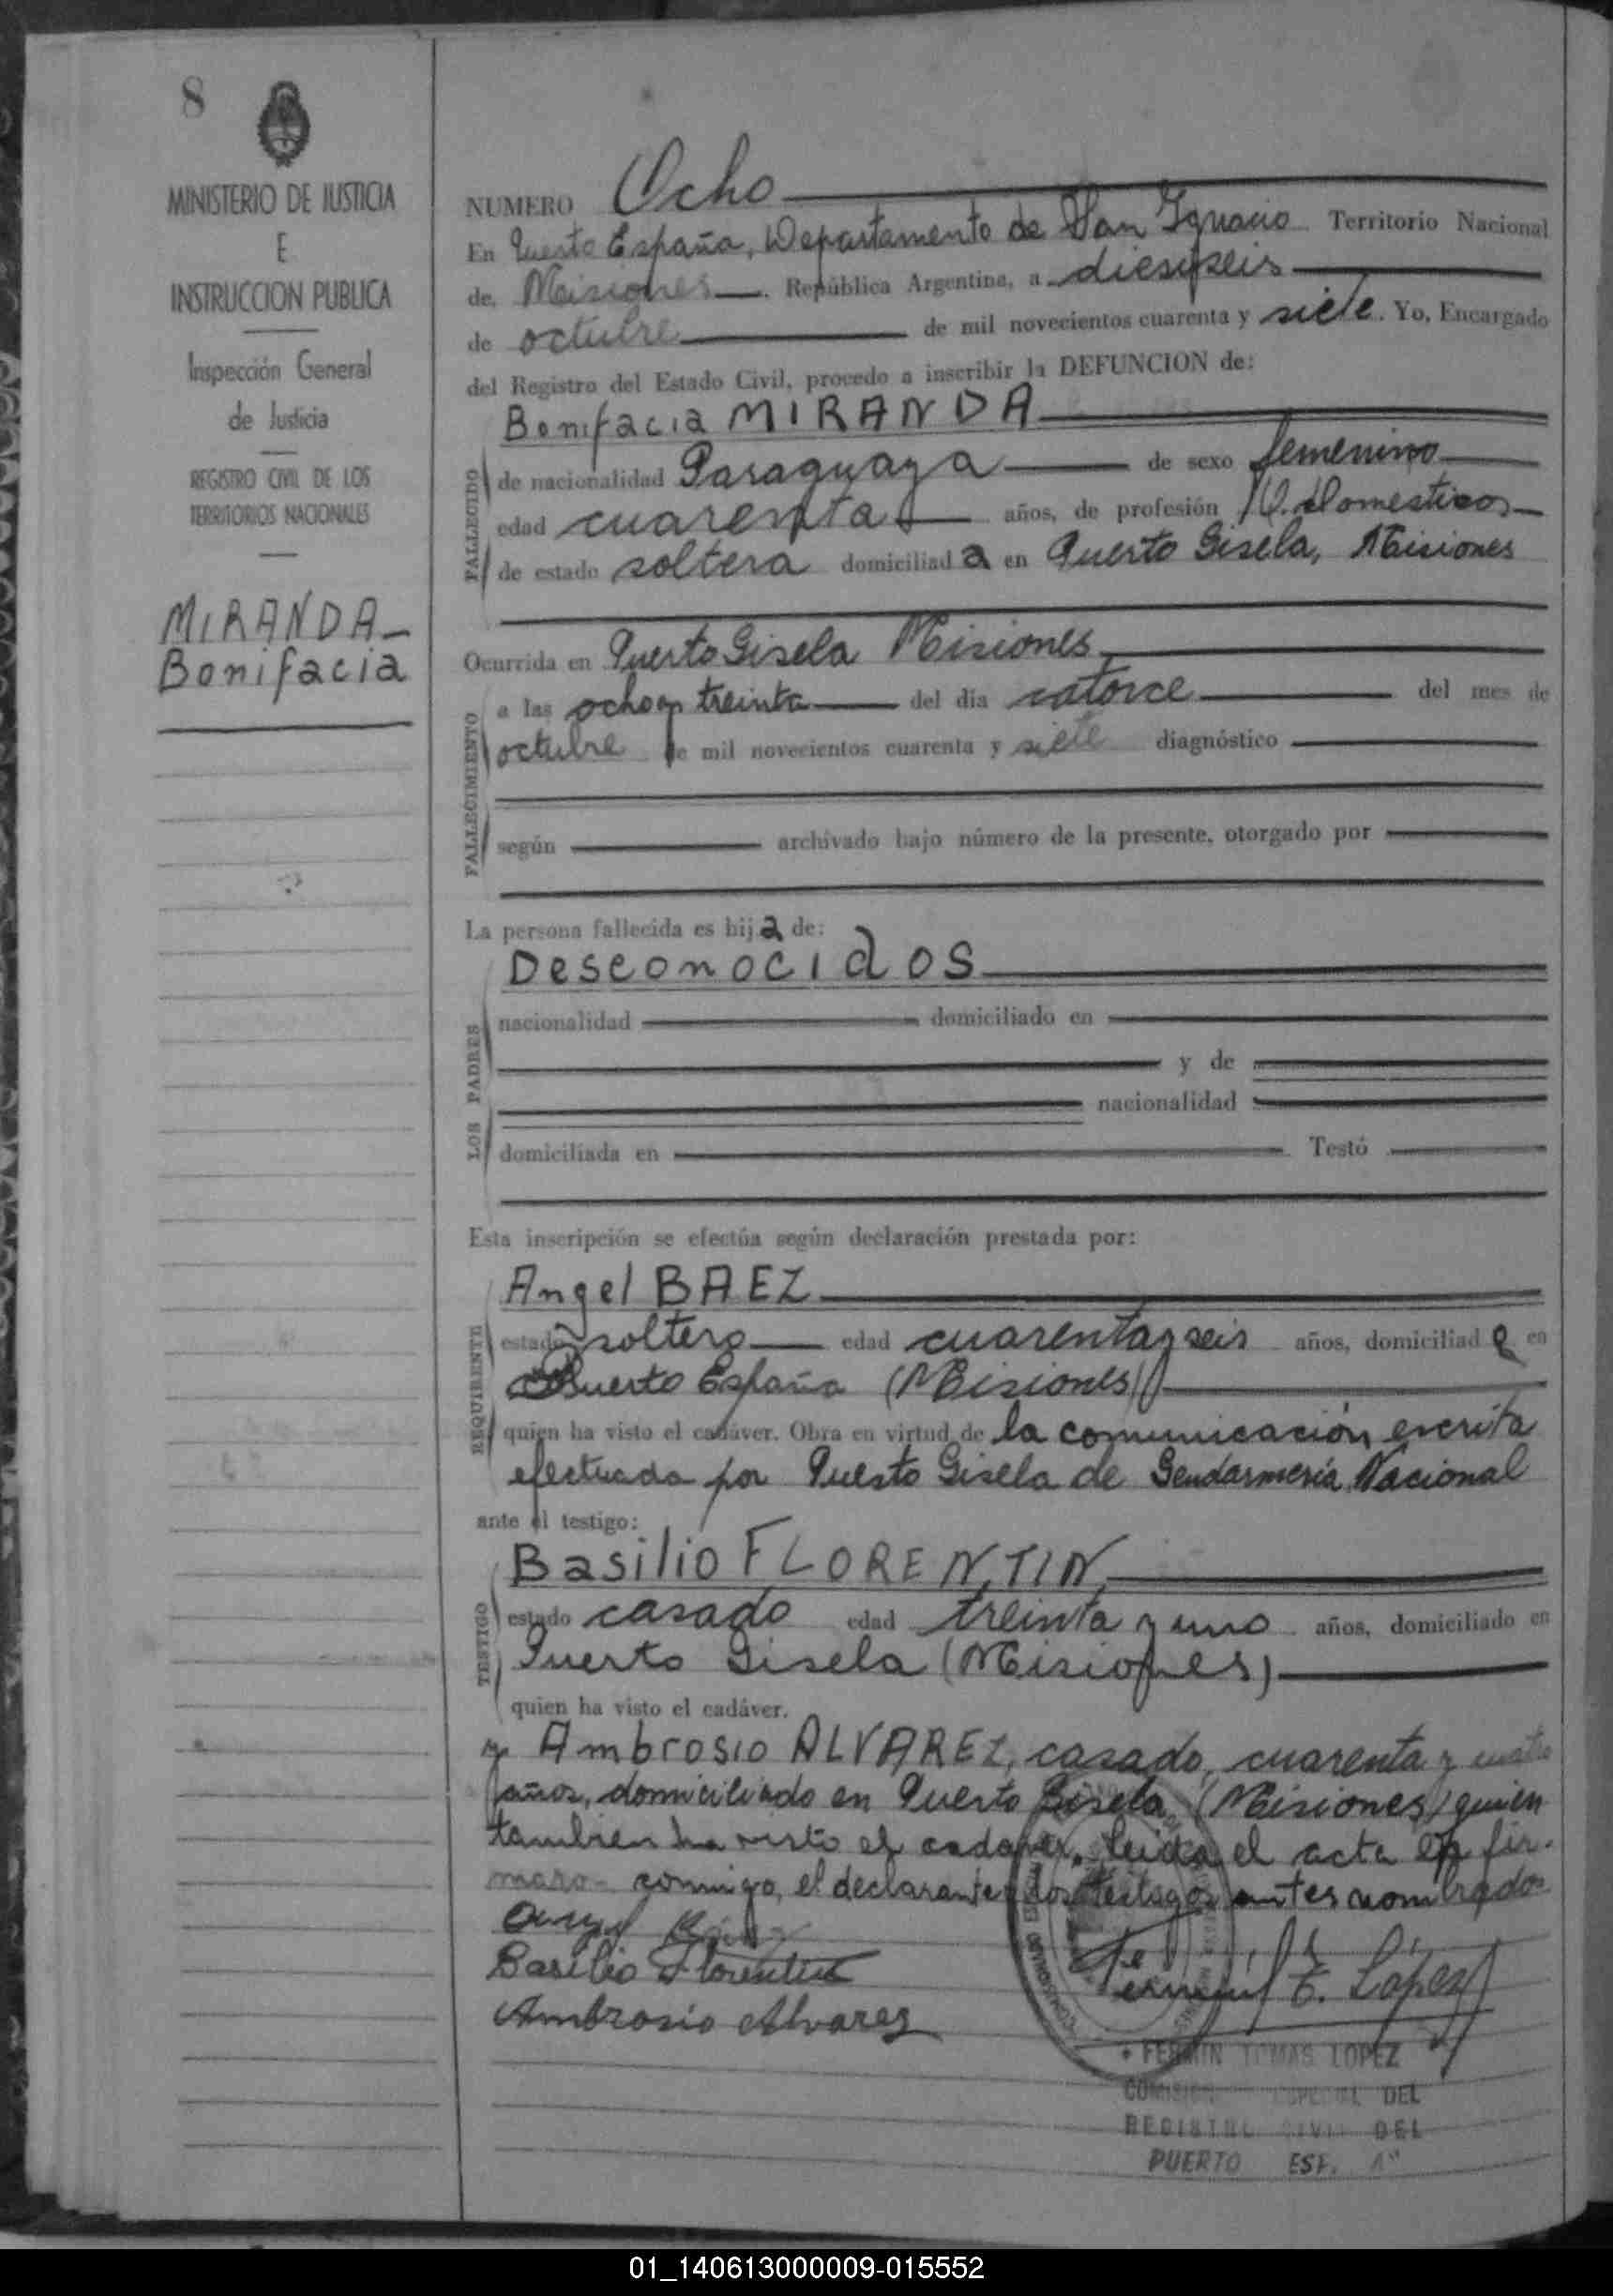 8
MINISTERIO DE JUSTICIA
E
INSTRUCCION PUBLICA
Inspección General
de Justicia
REGISTRO CIVIL DE LOS
TERRITORIOS NACIONALES
MIRANDA-
Bonifacia
NUMERO Ocho
En Puerto España, Departamento de San Ignacio Territorio Nacional
de, Misiones. República Argentina, a diesiseis
de octubre de mil novecientos cuarenta y siete. Yo, Encargado
del Registro del Estado Civil, procedo a inscribir la DEFUNCION de:
Bonifacia MIRANDA
FALLECIDO
de nacionalidad Paraguaya de sexo femenino
edad cuarenta años, de profesión Q. Domesticos
de estado soltera domiciliad a en Puerto Gisela, Misiones
Ocurrida en Puerto Gisela Misiones
FALLECIMIENTO
a las ocho y treinta del día catorce del mes de
octubre de mil novecientos cuarenta y siete diagnóstico
según archivado bajo número de la presente, otorgado por
La persona fallecida es hij a de:
Desconocidos
LOS PADRES
nacionalidad domiciliado en
y de
nacionalidad
domiciliada en Testó
Esta inscripción se efectúa según declaración prestada por:
Angel BAEZ
REQUIRENTE
estado soltero edad cuarenta y seis años, domiciliad o en
Puerto España (Misiones)
quien ha visto el cadáver. Obra en virtud de la comunicación escrita
efectuada por Puesto Gisela de Gendarmería Nacional
ante el testigo:
Basilio FLORENTIN,
TESTIGO
estado casado edad treinta y uno años, domiciliado en
Puerto Gisela (Misiones)
quien ha visto el cadáver.
y Ambrosio ALVAREZ, casado, cuarenta y cuatro
años, domiciliado en Puerto Gisela (Misiones) quien
tambien ha visto el cadaver. Leida el acta la fir-
maron conmigo, el declarante y los testigos antes nombrados
Angel Baez
Basilio Florentin
Ambrosio Alvarez
Fermin T. López
FERMIN TOMAS LOPEZ
DEL
REGISTRO CIVIL DEL
PUERTO ESP. Aª
01_140613000009-015552